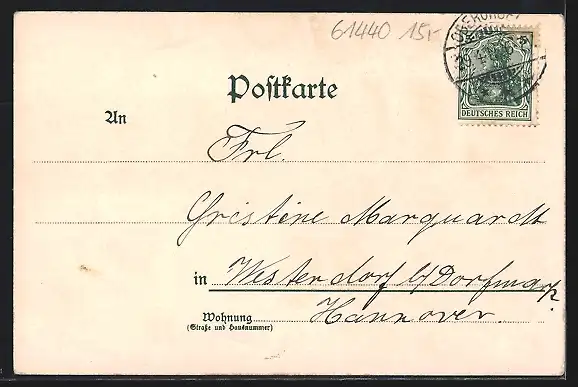 61440 15,-
DEUTSCHES REICH
Postkarte
An
Frl.
Gristine Marquardt
in Westerdorf b/Dorfmark
Hannover.
Wohnung
(Straße und Hausnummer)